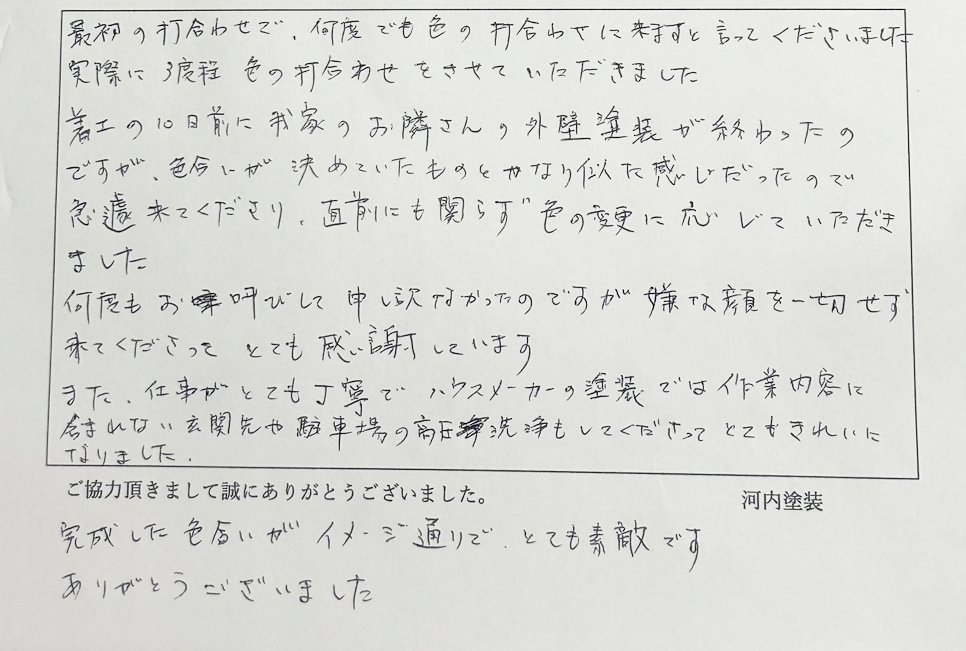 最初の打合わせで、何度でも色の打合わせに来ますと言ってくださいました
実際に3度程 色の打合わせをさせていただきました
着工の10日前に我家のお隣さんの外壁塗装が終わったの
ですが、色合いが 決めていたものとかなり似た感じだったので
急遽 来てくださり、直前にも関らず 色の変更に応じていただき
ました
何度もお呼びして申し訳なかったのですが嫌な顔を一切せず
来てくださって とても感謝しています
また、仕事がとても丁寧で ハウスメーカーの塗装では作業内容に
含まれない玄関先や駐車場の高圧洗浄もしてくださって とてもきれいに
なりました.
ご協力頂きまして誠にありがとうございました。
河内塗装
完成した色合いがイメージ通りで、とても素敵です
ありがとうございました